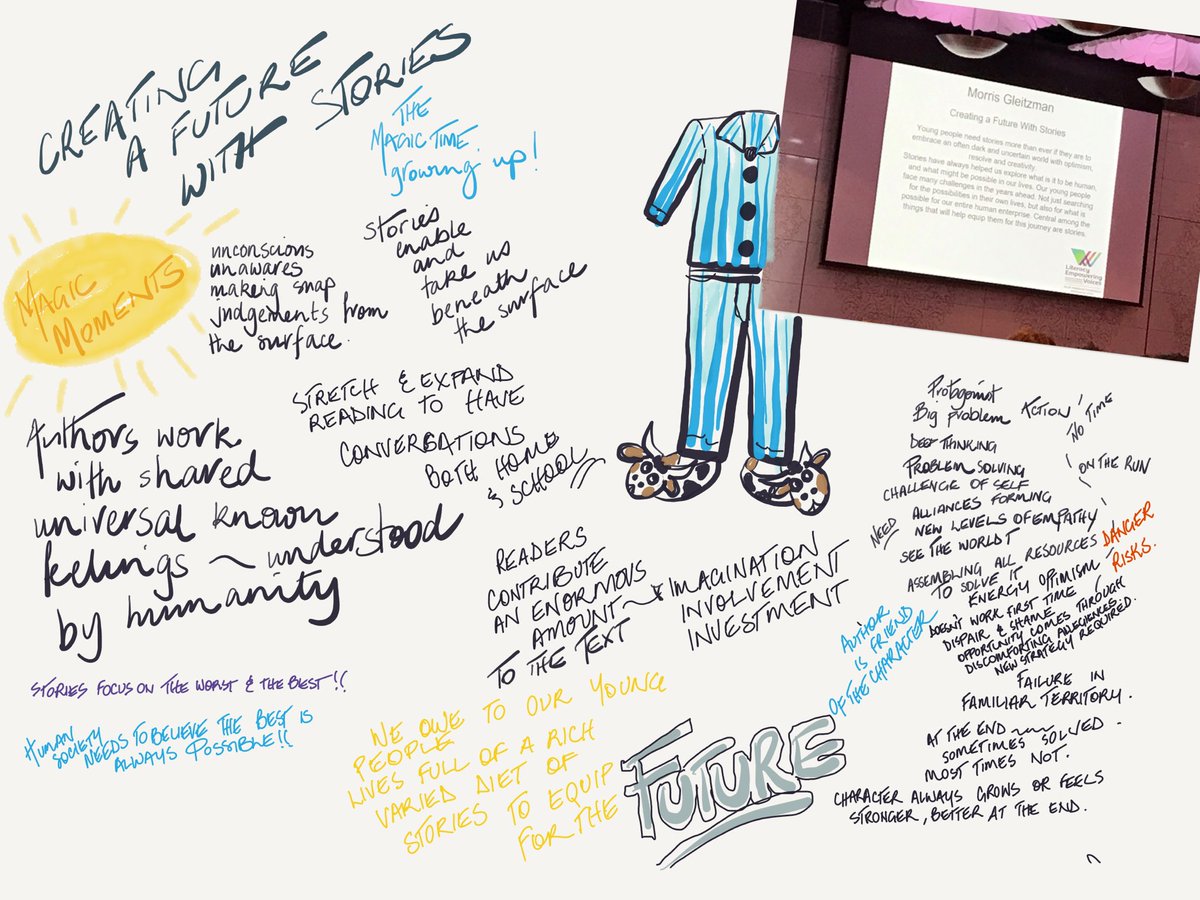 CREATING
A FUTURE
WITH STORIES
THE
MAGIC TIME.
growing up!
MAGIC
MOMENTS
unconscious
unawares
making snap
judgements from
the surface.
stories
enable
and
take us
beneath
the surface
STRETCH & EXPAND
READING TO HAVE
CONVERSATIONS
BOTH HOME
& SCHOOL
Authors work
with shared
universal known
feelings ~ understood
by humanity
STORIES FOCUS ON THE WORST & THE BEST!!
HUMAN
SOCIETY
NEEDS TO BELIEVE THE BEST IS
ALWAYS POSSIBLE!!
READERS
CONTRIBUTE
AN ENORMOUS
AMOUNT
TO THE TEXT
IMAGINATION
INVOLVEMENT
INVESTMENT
WE OWE TO OUR YOUNG
PEOPLE
LIVES FULL OF A RICH
VARIED DIET OF
STORIES TO EQUIP
FOR THE
FUTURE
AUTHOR
IS FRIEND
OF THE CHARACTER
Morris Gleitzman
Creating a Future With Stories
Young people need stories more than ever if they are to
embrace an often dark and uncertain world with optimism,
resolve and creativity.
Stories have always helped us explore what is it to be human,
and what might be possible in our lives. Our young people
face many challenges in the years ahead. Not just searching
for the possibilities in their own lives, but also for what is
possible for our entire human enterprise. Central among the
things that will help equip them for this journey are stories.
Literacy
Empowering
Voices
Protagonist
Big problem ACTION!
NO TIME
DEEP THINKING
PROBLEM SOLVING
ON THE RUN
CHALLENGE OF SELF
ALLIANCES FORMING
NEED
NEW LEVELS OF EMPATHY
SEE THE WORLD
ASSEMBLING ALL RESOURCES
TO SOLVE IT
DANGER
RISKS.
ENERGY OPTIMISM
DOESN'T WORK FIRST TIME
DISPAIR & SHAME
OPPORTUNITY COMES THROUGH
DISCOMFORTING
NEW STRATEGY REQUIRED.
FAILURE IN
FAMILIAR TERRITORY.
AT THE END
SOMETIMES SOLVED.
MOST TIMES NOT.
CHARACTER ALWAYS GROWS OR FEELS
STRONGER, BETTER AT THE END.